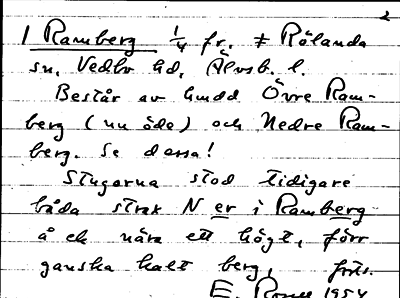 2
1 Ramberg 1/4 fr. ≠ Rölanda
sn, Vedbo hd, Älvsb. l.
Består av hmdd Övre Ram-
berg (nu öde) och Nedre Ram-
berg. Se dessa!
Stugorna stod tidigare
båda strax N er i Ramberg
å ch nära ett högt, förr
ganska kalt berg, forts.
E. 1954